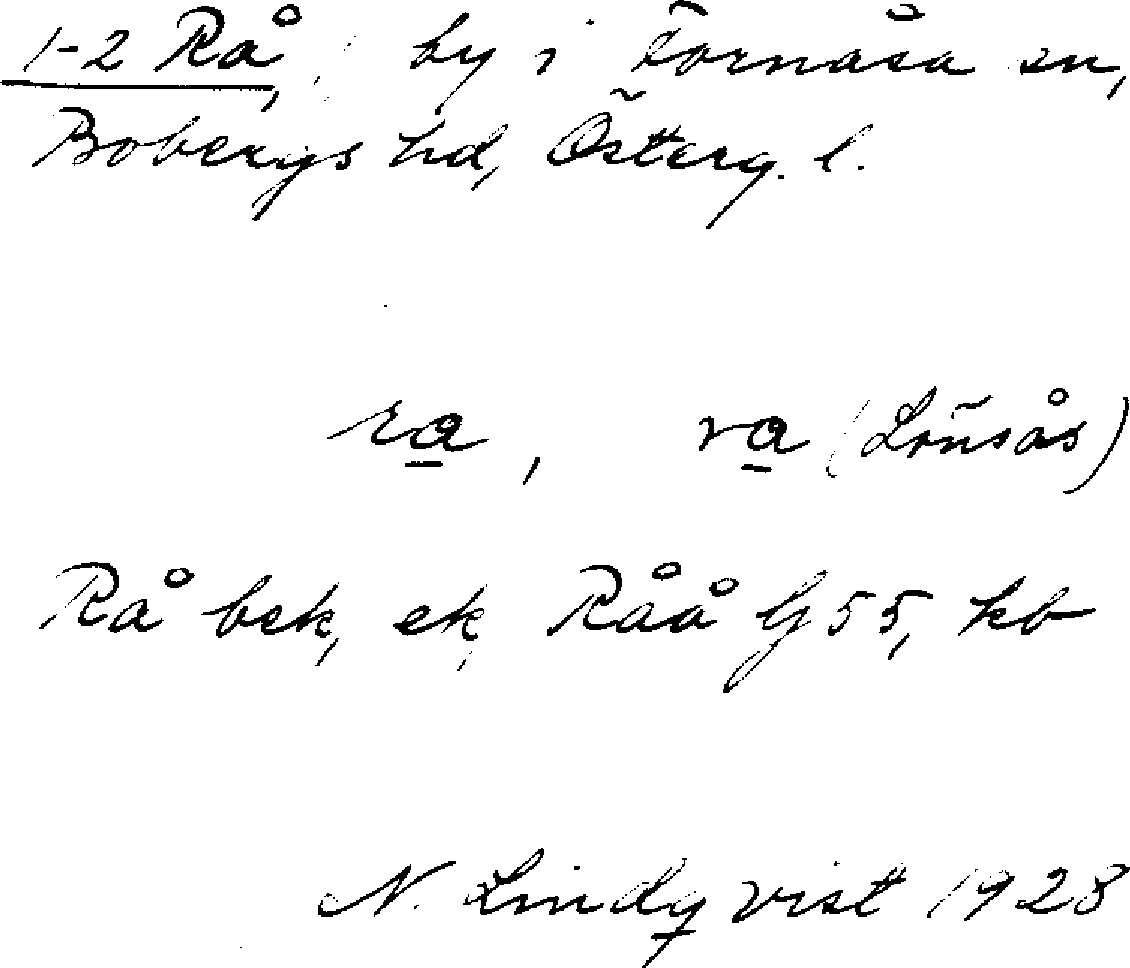 1-2 Rå, by i Fornåsa sn,
Bobergs hd, Österg. l.
ra, ra (Lönsås)
Rå bek, ek, Råå G 55, kb
N. Lindqvist 1928